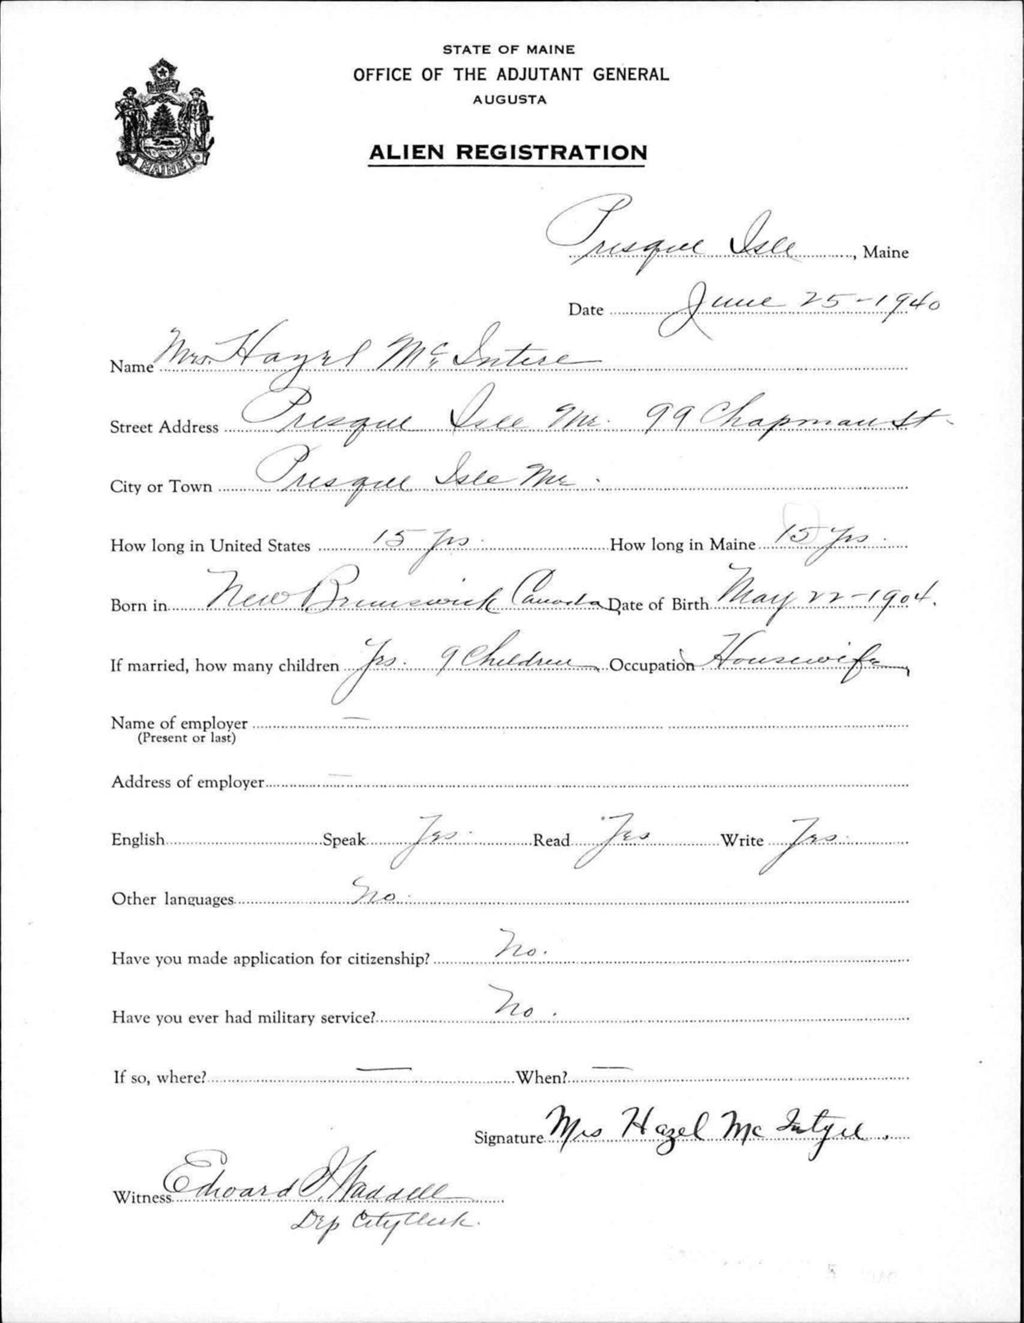 STATE OF MAINE
OFFICE OF THE ADJUTANT GENERAL
AUGUSTA
MAINE
ALIEN REGISTRATION
Presque Isle, Maine
Date June 25-1940
Name Mrs. Hazel McIntire
Street Address Presque Isle Me. 99 Chapman St.
City or Town Presque Isle Me.
How long in United States 15 yrs. How long in Maine 15 yrs.
Born in New Brunswick Canada Date of Birth May 22-1904.
If married, how many children Yes. 9 Children Occupation Housewife
Name of employer —
(Present or last)
Address of employer —
English Speak Yes. Read Yes Write Yes.
Other languages No.
Have you made application for citizenship? No.
Have you ever had military service? No.
If so, where? — When? —
Signature Mrs Hazel Mc Intyre.
Witness Edward Waddell
Dep City Clerk.